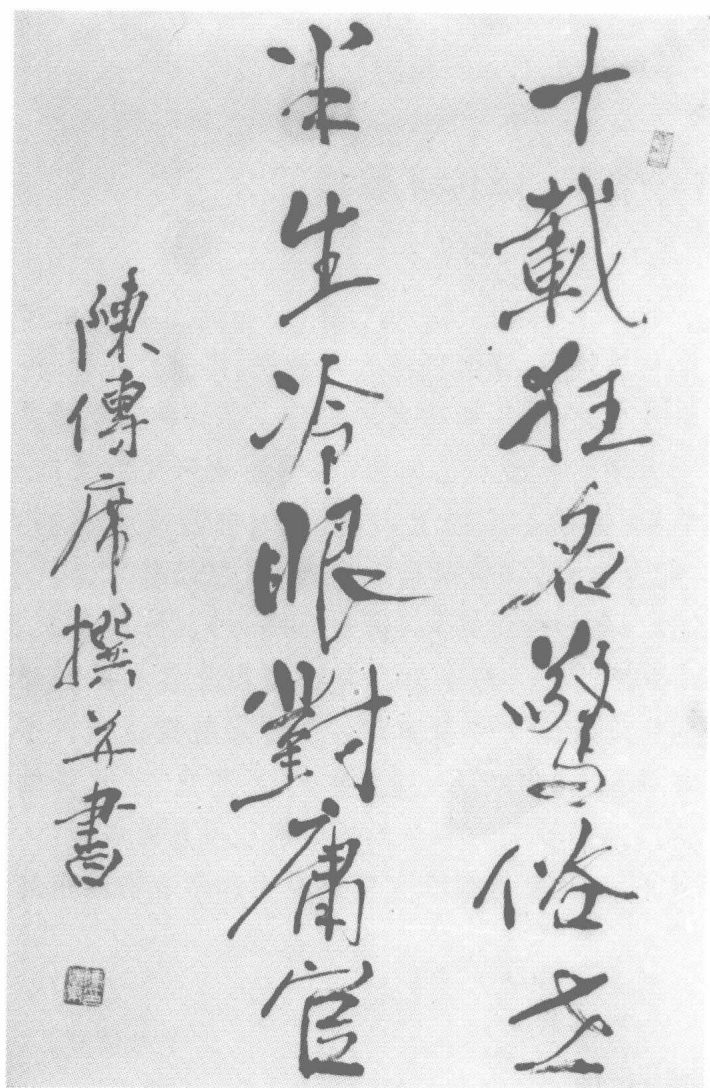 十載狂名驚俗世
半生冷眼對庸官
陳傳席撰并書